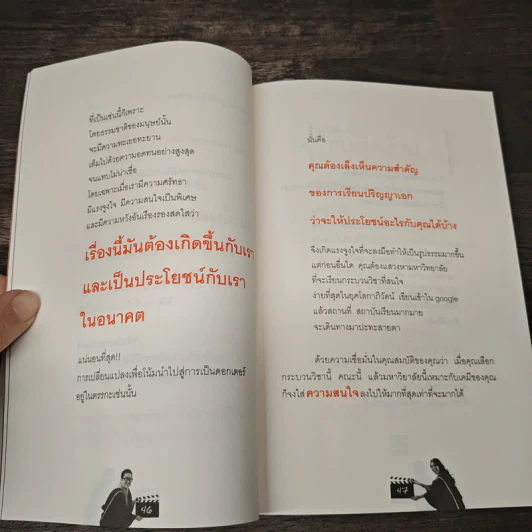 ที่เป็นเช่นนี้ก็เพราะ
โดยธรรมชาติของมนุษย์นั้น
จะมีความทะเยอทะยาน
เต็มไปด้วยความอดทนอย่างสูงสุด
จนแทบไม่น่าเชื่อ
โดยเฉพาะเมื่อเรามีความศรัทธา
มีแรงจูงใจ มีความสนใจเป็นพิเศษ
และมีความหวังอันเรืองรองสดใสว่า
เรื่องนี้มันต้องเกิดขึ้นกับเรา
และเป็นประโยชน์กับเรา
ในอนาคต
แน่นอนที่สุด!!
การเปลี่ยนแปลงเพื่อโน้มนำไปสู่การเป็นดอกเตอร์
อยู่ในตรรกะเช่นนั้น
46
นั่นคือ
คุณต้องเล็งเห็นความสำคัญ
ของการเรียนปริญญาเอก
ว่าจะให้ประโยชน์อะไรกับคุณได้บ้าง
จึงเกิดแรงจูงใจที่จะลงมือทำให้เป็นรูปธรรมมากขึ้น
แต่ก่อนอื่นใด คุณต้องแสวงหามหาวิทยาลัย
ที่จะเรียนกระบวนวิชาที่สนใจ
ง่ายที่สุดในยุคโลกาภิวัตน์ เขียนเข้าใน google
แล้วสถานที่ สถาบันเรียนมากมาย
จะเดินทางมาปะทะสายตา
ด้วยความเชื่อมั่นในคุณสมบัติของคุณว่า เมื่อคุณเลือก
กระบวนวิชานี้ คณะนี้ แล้วมหาวิทยาลัยนี้เหมาะกับเคมีของคุณ
ก็จงใส่ความสนใจลงไปให้มากที่สุดเท่าที่จะมากได้
47